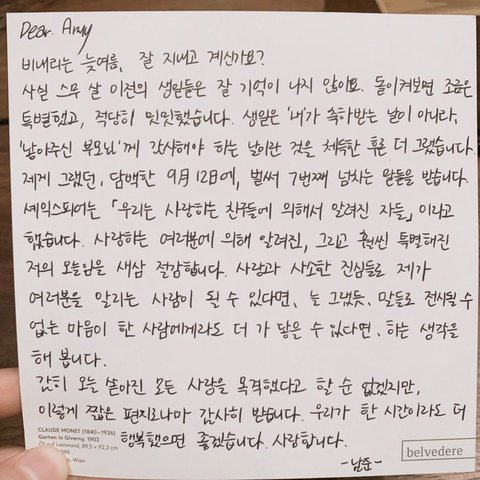 Dear. Army
비내리는 늦여름, 잘 지내고 계신가요?
사실 스무 살 이전의 생일들은 잘 기억이 나지 않아요. 돌이켜보면 조금은
특별했고, 적당히 밋밋했습니다. 생일은 '내'가 축하받는 날이 아니라,
'낳아주신 부모님'께 감사해야 하는 날이란 것을 체득한 후론 더 그랬습니다.
제게 그랬던, 담백한 9月 12日에, 벌써 7번째 넘치는 말들을 받습니다.
셰익스피어는 「우리는 사랑하는 친구들에 의해서 알려진 자들」이라고
했습니다. 사랑하는 여러분에 의해 알려진, 그리고 훨씬 특별해진
저의 오늘임을 새삼 절감합니다. 사랑과 사소한 진심들로 제가
여러분을 알리는 사람이 될 수 있다면, 늘 그랬듯, 말들로 전시될 수
없는 마음이 한 사람에게라도 더 가 닿을 수 있다면, 하는 생각을
해 봅니다.
감히 오늘 쏟아진 모든 사랑을 목격했다고 할 순 없겠지만,
이렇게 짧은 편지로나마 감사히 받습니다. 우리가 한 시간이라도 더
행복했으면 좋겠습니다. 사랑합니다.
-남준-
CLAUDE MONET (1840–1926)
Garten in Giverny, 1902
Öl auf Leinwand, 89,5 x 92,3 cm
889
, Wien
belvedere